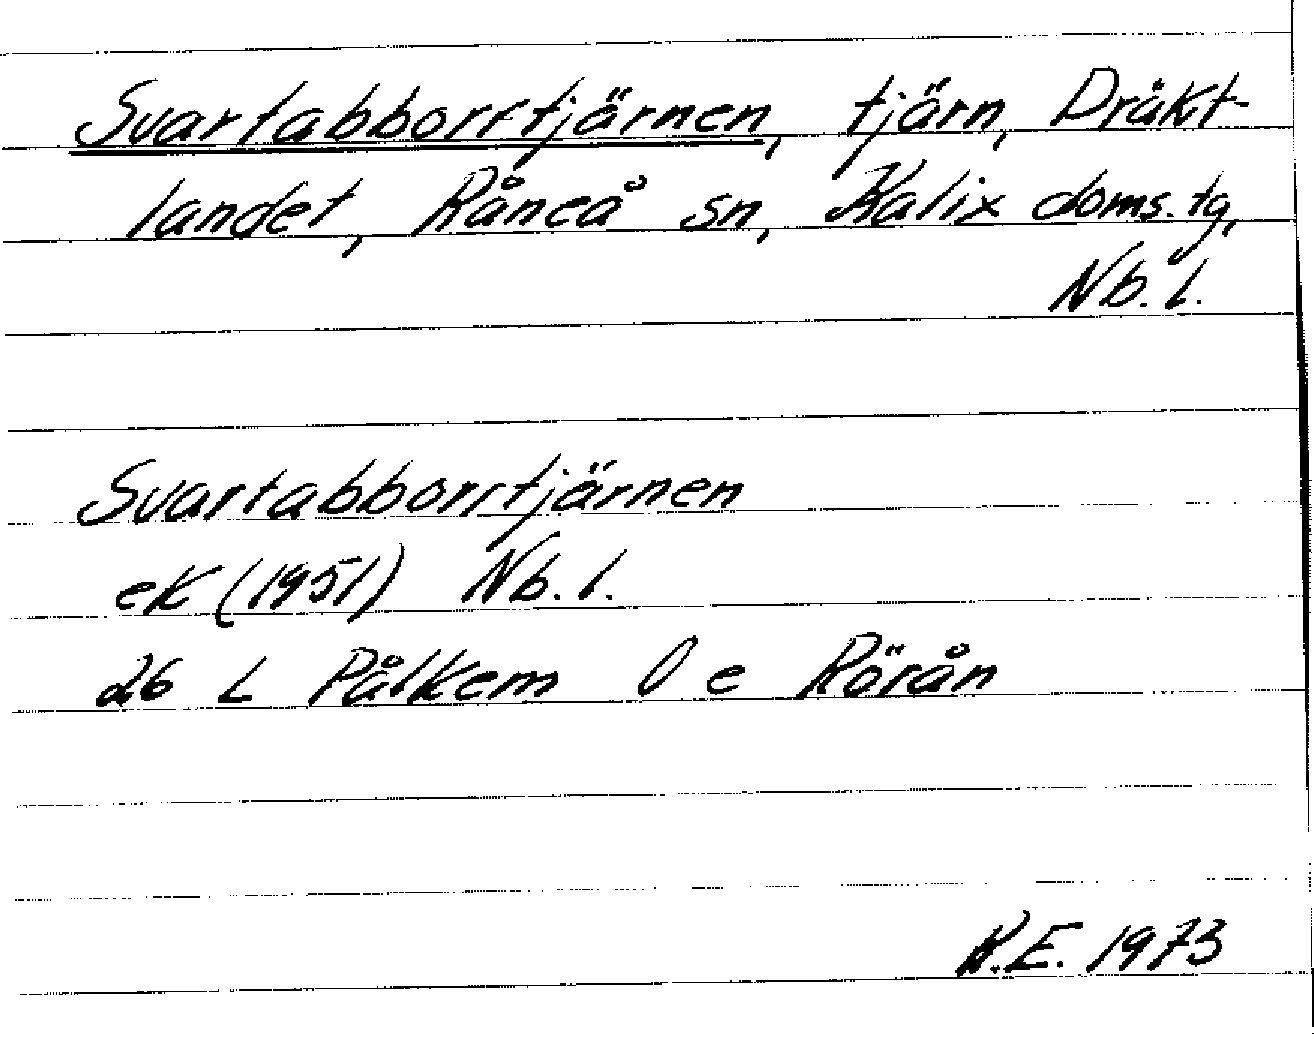 Svartabborrtjärnen, tjärn, Dråkt-
landet, Råneå sn, Kalix doms. tg,
Nb. l.
Svartabborrtjärnen
ek (1951) Nb. l.
26 L Pålkem 0 e Rörån
K.E. 1973